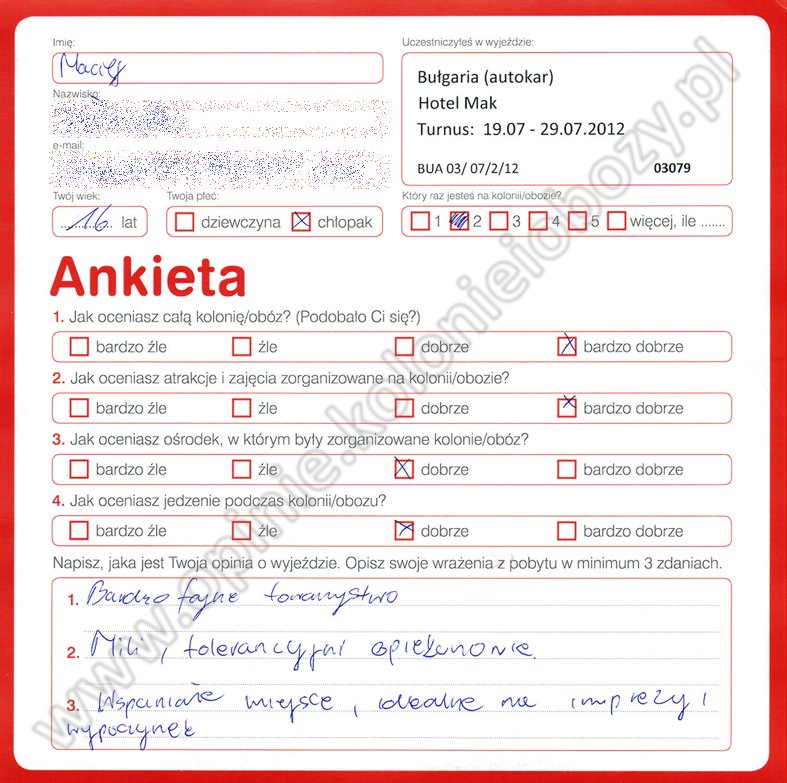 Imię:
Maciej
Uczestniczyłeś w wyjeździe:
Bułgaria (autokar)
Hotel Mak
Turnus: 19.07 - 29.07.2012
BUA 03/ 07/2/12 03079
Nazwisko:
e-mail:
Twój wiek: Twoja płeć: Który raz jesteś na kolonii/obozie?
16 lat dziewczyna chłopak 1 2 3 4 5 więcej, ile .......
Ankieta
1. Jak oceniasz całą kolonię/obóz? (Podobało Ci się?)
bardzo źle źle dobrze bardzo dobrze
2. Jak oceniasz atrakcje i zajęcia zorganizowane na kolonii/obozie?
bardzo źle źle dobrze bardzo dobrze
3. Jak oceniasz ośrodek, w którym były zorganizowane kolonie/obóz?
bardzo źle źle dobrze bardzo dobrze
4. Jak oceniasz jedzenie podczas kolonii/obozu?
bardzo źle źle dobrze bardzo dobrze
Napisz, jaka jest Twoja opinia o wyjeździe. Opisz swoje wrażenia z pobytu w minimum 3 zdaniach.
1. Bardzo fajne towarzystwo
2. Mili, tolerancyjni opiekunowie.
3. Wspaniałe miejsce, idealne na imprezy i
wypoczynek
www.opinie.kolonieiobozy.pl